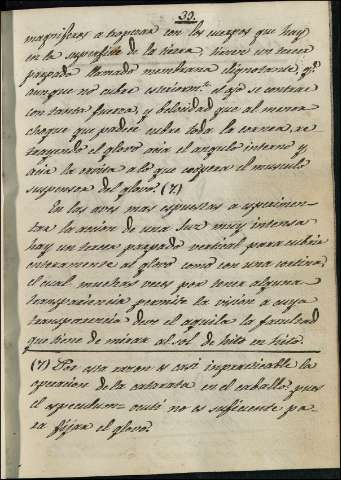 33.
magniferes a tropezar con los cuerpos que hay
en la superficie de la tierra, tienen un tercer
parpado llamado membrana clignotante, q.e
aunque no cubre esteriorm.te el ojo se contrae
con tanta fuerza, y belosidad que al menor
choque que padece cubre toda la cornea, re
trayendo el glovo acia el angulo interno y
acia la orvita a lo que coopera el musculo
suspensor del glovo. (7)
En las aves mas espuestas a esperimen-
tar la acion de una luz muy intensa
hay un tercer parpado vertical para cubrir
enteramente al glovo como con una cortina,
el cual muchas veces por tener alguna
transparencia permite la vision a cuya
transparencia deve el aguila la facultad
que tiene de mirar al sol de hito en hito.
(7) Por esta razon es casi impracticable la
operacion de la catarata en el caballo, pues
el especulum-oculi no es suficiente pa-
ra fijar el glovo.